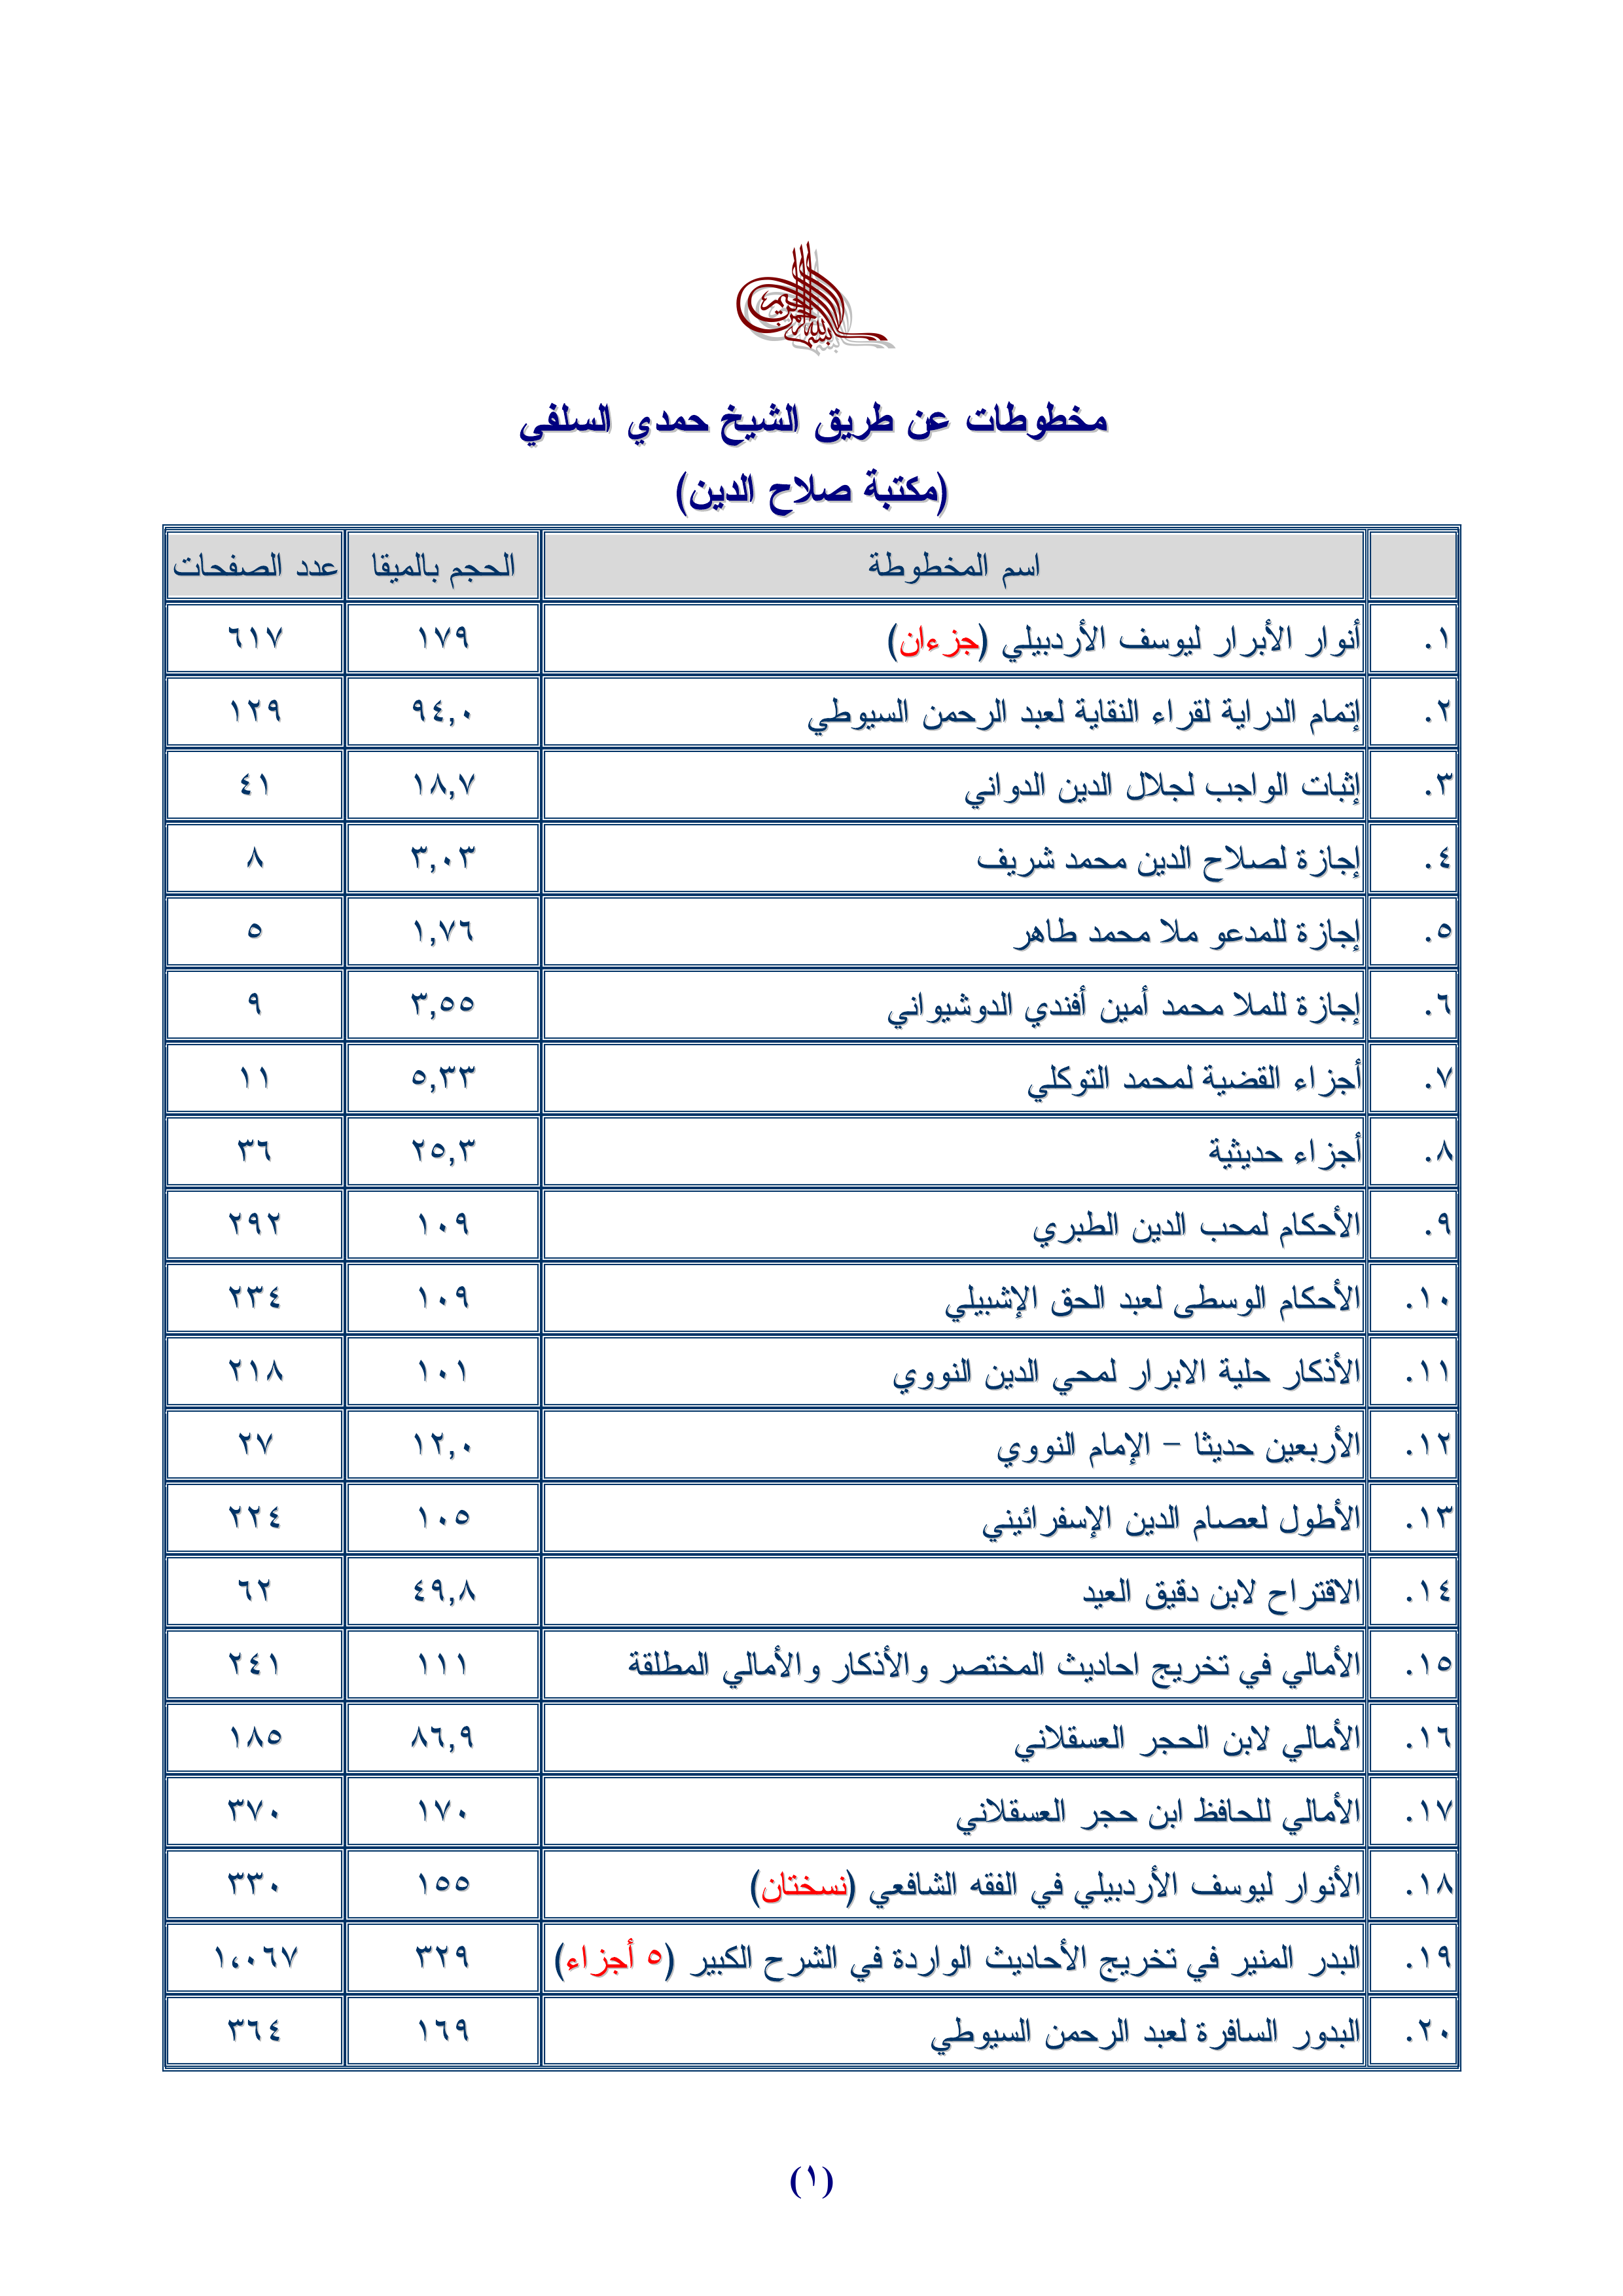 بسم الله الرحمن الرحيم
مخطوطات عن طريق الشيخ حمدي السلفي
(مكتبة صلاح الدين)
اسم المخطوطة الحجم بالميقا عدد الصفحات
١. أنوار الأبرار ليوسف الأردبيلي (جزءان) ١٧٩ ٦١٧
٢. إتمام الدراية لقراء النقاية لعبد الرحمن السيوطي ٩٤,٠ ١٢٩
٣. إثبات الواجب لجلال الدين الدواني ١٨,٧ ٤١
٤. إجازة لصلاح الدين محمد شريف ٣,٠٣ ٨
٥. إجازة للمدعو ملا محمد طاهر ١,٧٦ ٥
٦. إجازة للملا محمد أمين أفندي الدوشيواني ٣,٥٥ ٩
٧. أجزاء القضية لمحمد التوكلي ٥,٣٣ ١١
٨. أجزاء حديثية ٢٥,٣ ٣٦
٩. الأحكام لمحب الدين الطبري ١٠٩ ٢٩٢
١٠. الأحكام الوسطى لعبد الحق الإشبيلي ١٠٩ ٢٣٤
١١. الأذكار حلية الابرار لمحي الدين النووي ١٠١ ٢١٨
١٢. الأربعين حديثا – الإمام النووي ١٢,٠ ٢٧
١٣. الأطول لعصام الدين الإسفرائيني ١٠٥ ٢٢٤
١٤. الاقتراح لابن دقيق العيد ٤٩,٨ ٦٢
١٥. الأمالي في تخريج احاديث المختصر والأذكار والأمالي المطلقة ١١١ ٢٤١
١٦. الأمالي لابن الحجر العسقلاني ٨٦,٩ ١٨٥
١٧. الأمالي للحافظ ابن حجر العسقلاني ١٧٠ ٣٧٠
١٨. الأنوار ليوسف الأردبيلي في الفقه الشافعي (نسختان) ١٥٥ ٣٣٠
١٩. البدر المنير في تخريج الأحاديث الواردة في الشرح الكبير (٥ أجزاء) ٣٢٩ ١،٠٦٧
٢٠. البدور السافرة لعبد الرحمن السيوطي ١٦٩ ٣٦٤
(١)